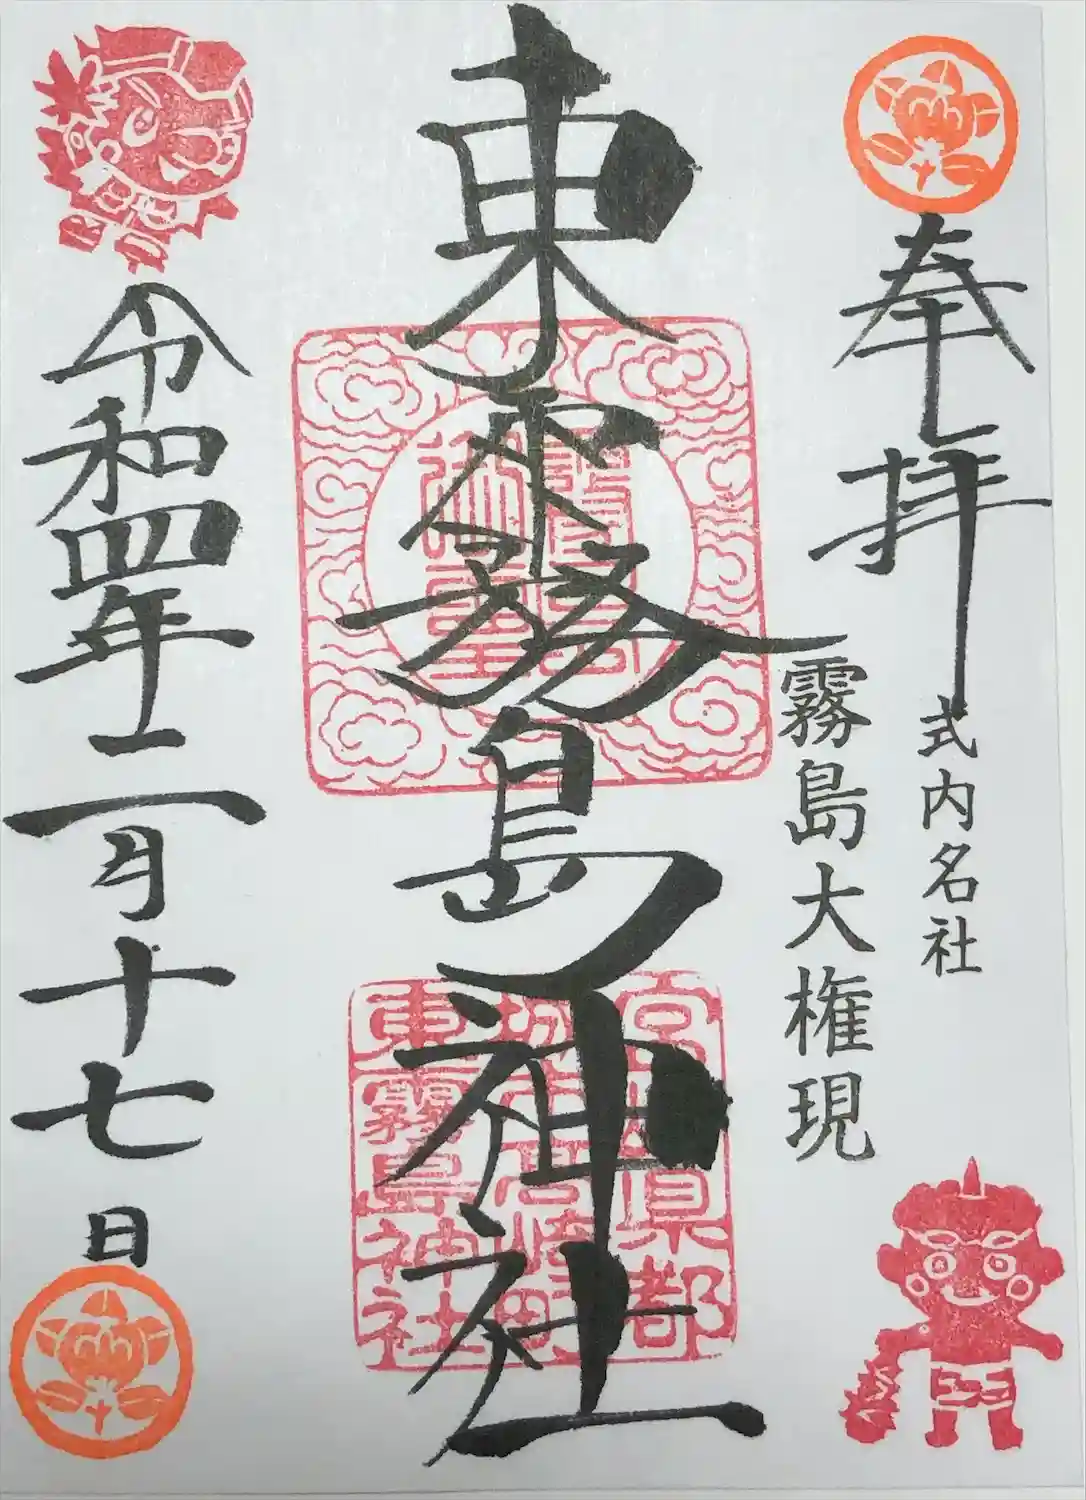 奉拝
式内名社
霧島大権現
東霧島神社
令和四年二月十七日
宮崎県都
城市高崎町
東霧島神社